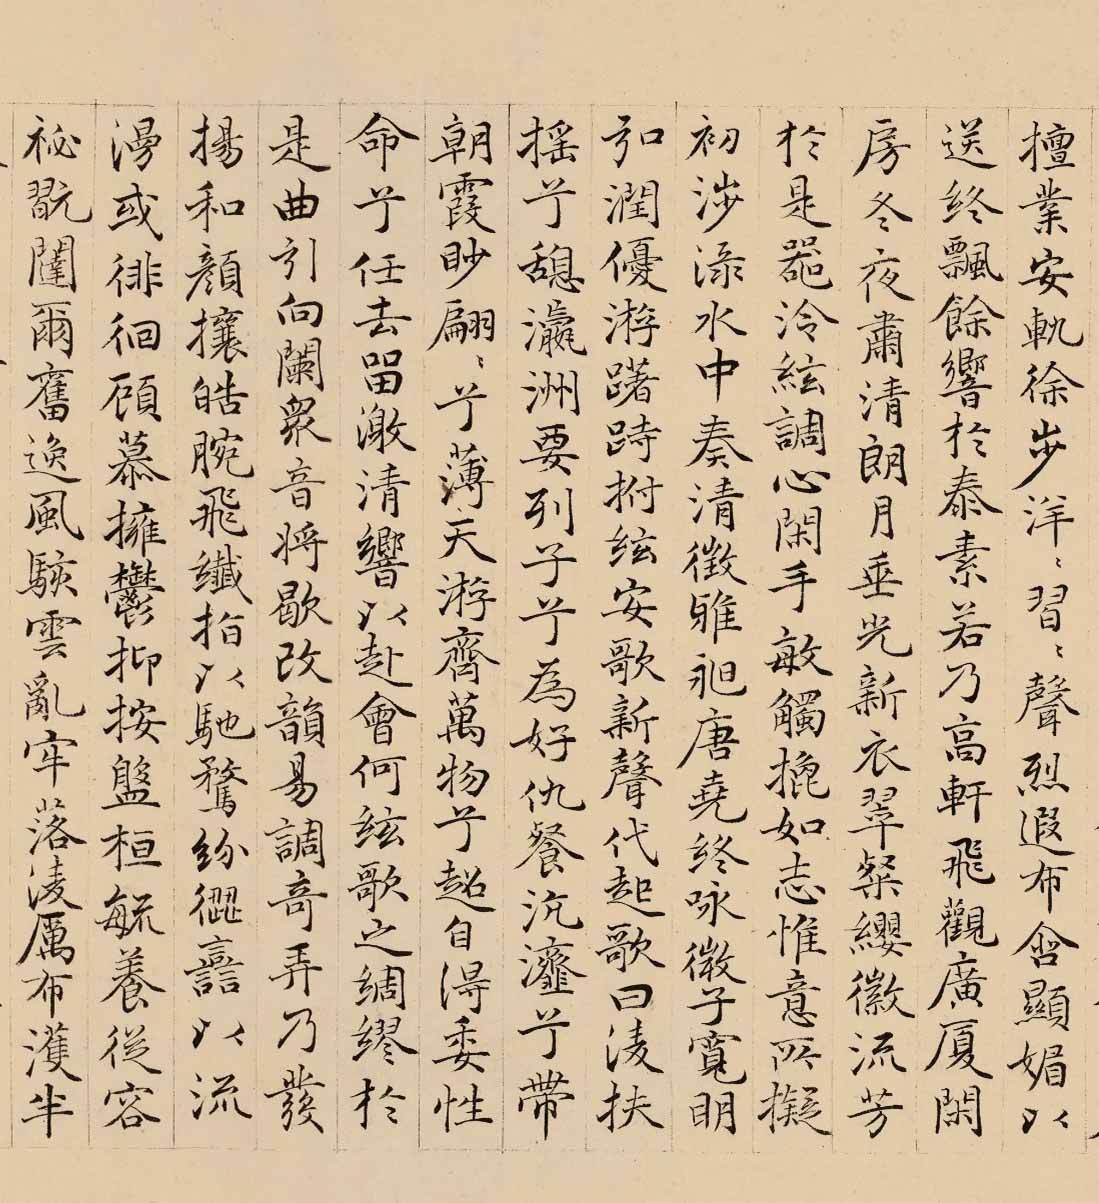 擅業安軌徐步洋〻習〻聲烈遐布含顯媚以
送終飄餘響於泰素若乃高軒飛觀廣厦閑
房冬夜肅清朗月垂光新衣翠粲纓徽流芳
於是器泠絃調心閑手敏觸㧡如志惟意所擬
初涉淥水中奏清徵雅昶唐堯終咏微子寬明
弘潤優游躇跱拊絃安歌新聲代起歌曰淩扶
摇兮憩瀛洲要列子兮為好仇餐沆瀣兮帶
朝霞眇翩〻兮薄天游齊萬物兮超自得委性
命兮任去留激清響以赴會何絃歌之綢繆於
是曲引向闌衆音將歇改韻易調奇弄乃發
揚和顏攘皓腕飛纖指以馳騖紛𠎷譶以流
漫或徘徊顧慕擁鬱抑按盤桓毓養從容
祕翫闥爾奮逸風駭雲亂牢落淩厲布濩半